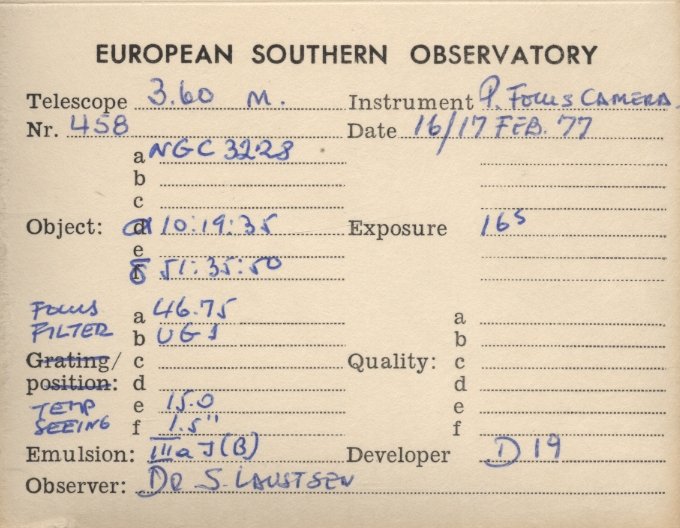 EUROPEAN SOUTHERN OBSERVATORY
Telescope 3.60 M. Instrument P. FOCUS CAMERA
Nr. 458 Date 16/17 FEB. 77
a NGC 3228
b
c
Object: d α 10:19:35 Exposure 16s
e
f δ 51:35:50
FOCUS a 46.75 a
FILTER b UG1 b
Grating/ c Quality: c
position: d d
TEMP e 15.0 e
SEEING f 1.5" f
Emulsion: IIIa J (B) Developer D 19
Observer: DR S. LAUSTSEN